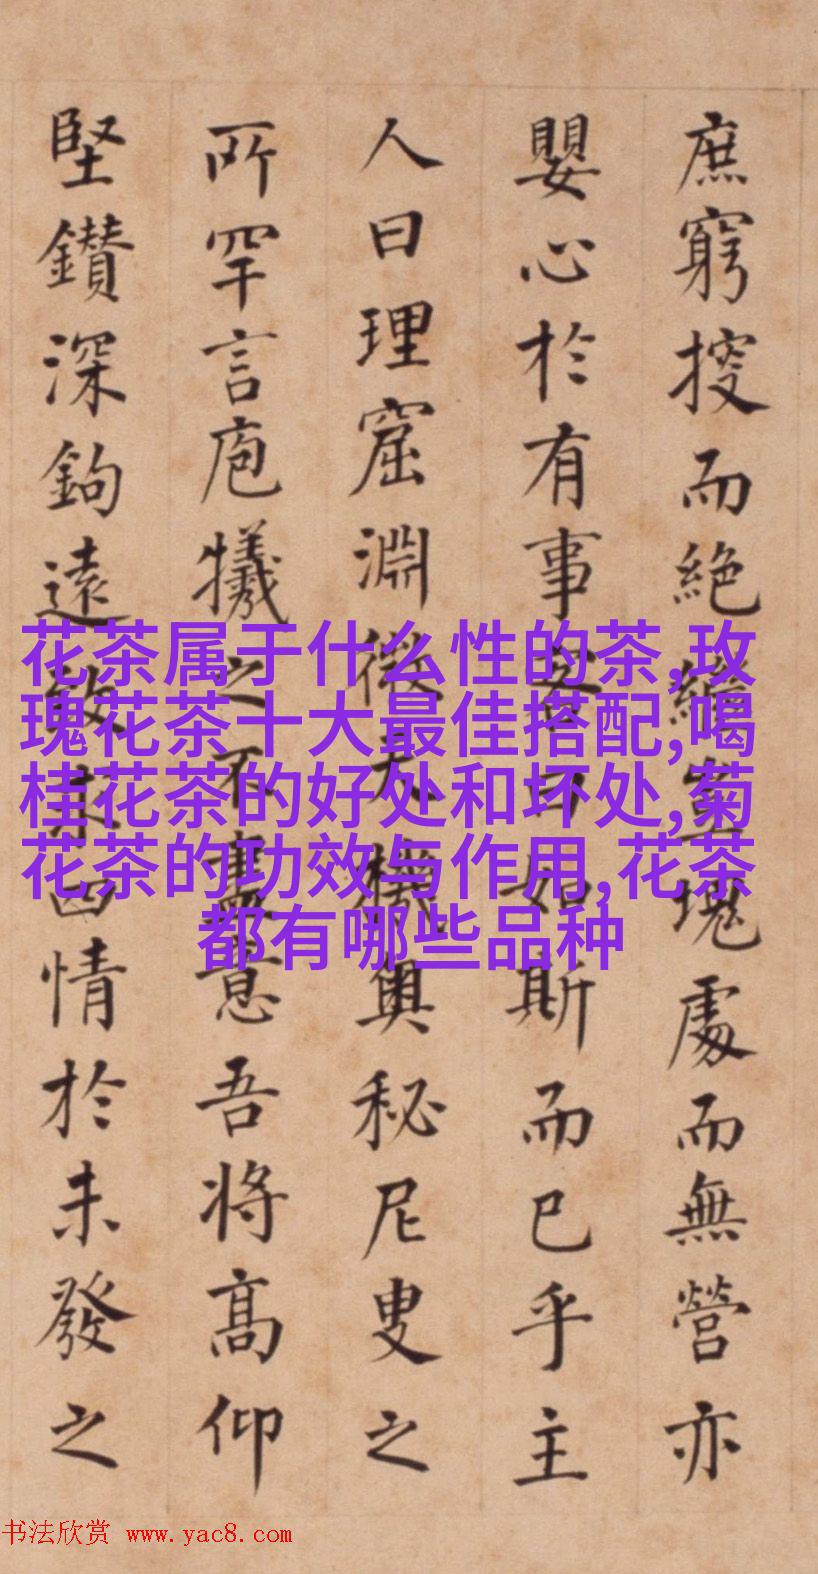 庶窮搜而絶編豈塊處而無營亦
嬰心於有事曰如斯而已乎主
人曰理窟淵微天機奥秘尼叟之
所罕言庖犧之不盡意吾将髙仰
堅鑽深鉤遠致四情於未發之
花茶属于什么性的茶,玫
瑰花茶十大最佳搭配,喝
桂花茶的好处和坏处,菊
花茶的功效与作用,花茶
都有哪些品种
书法欣赏 www.yac8.com